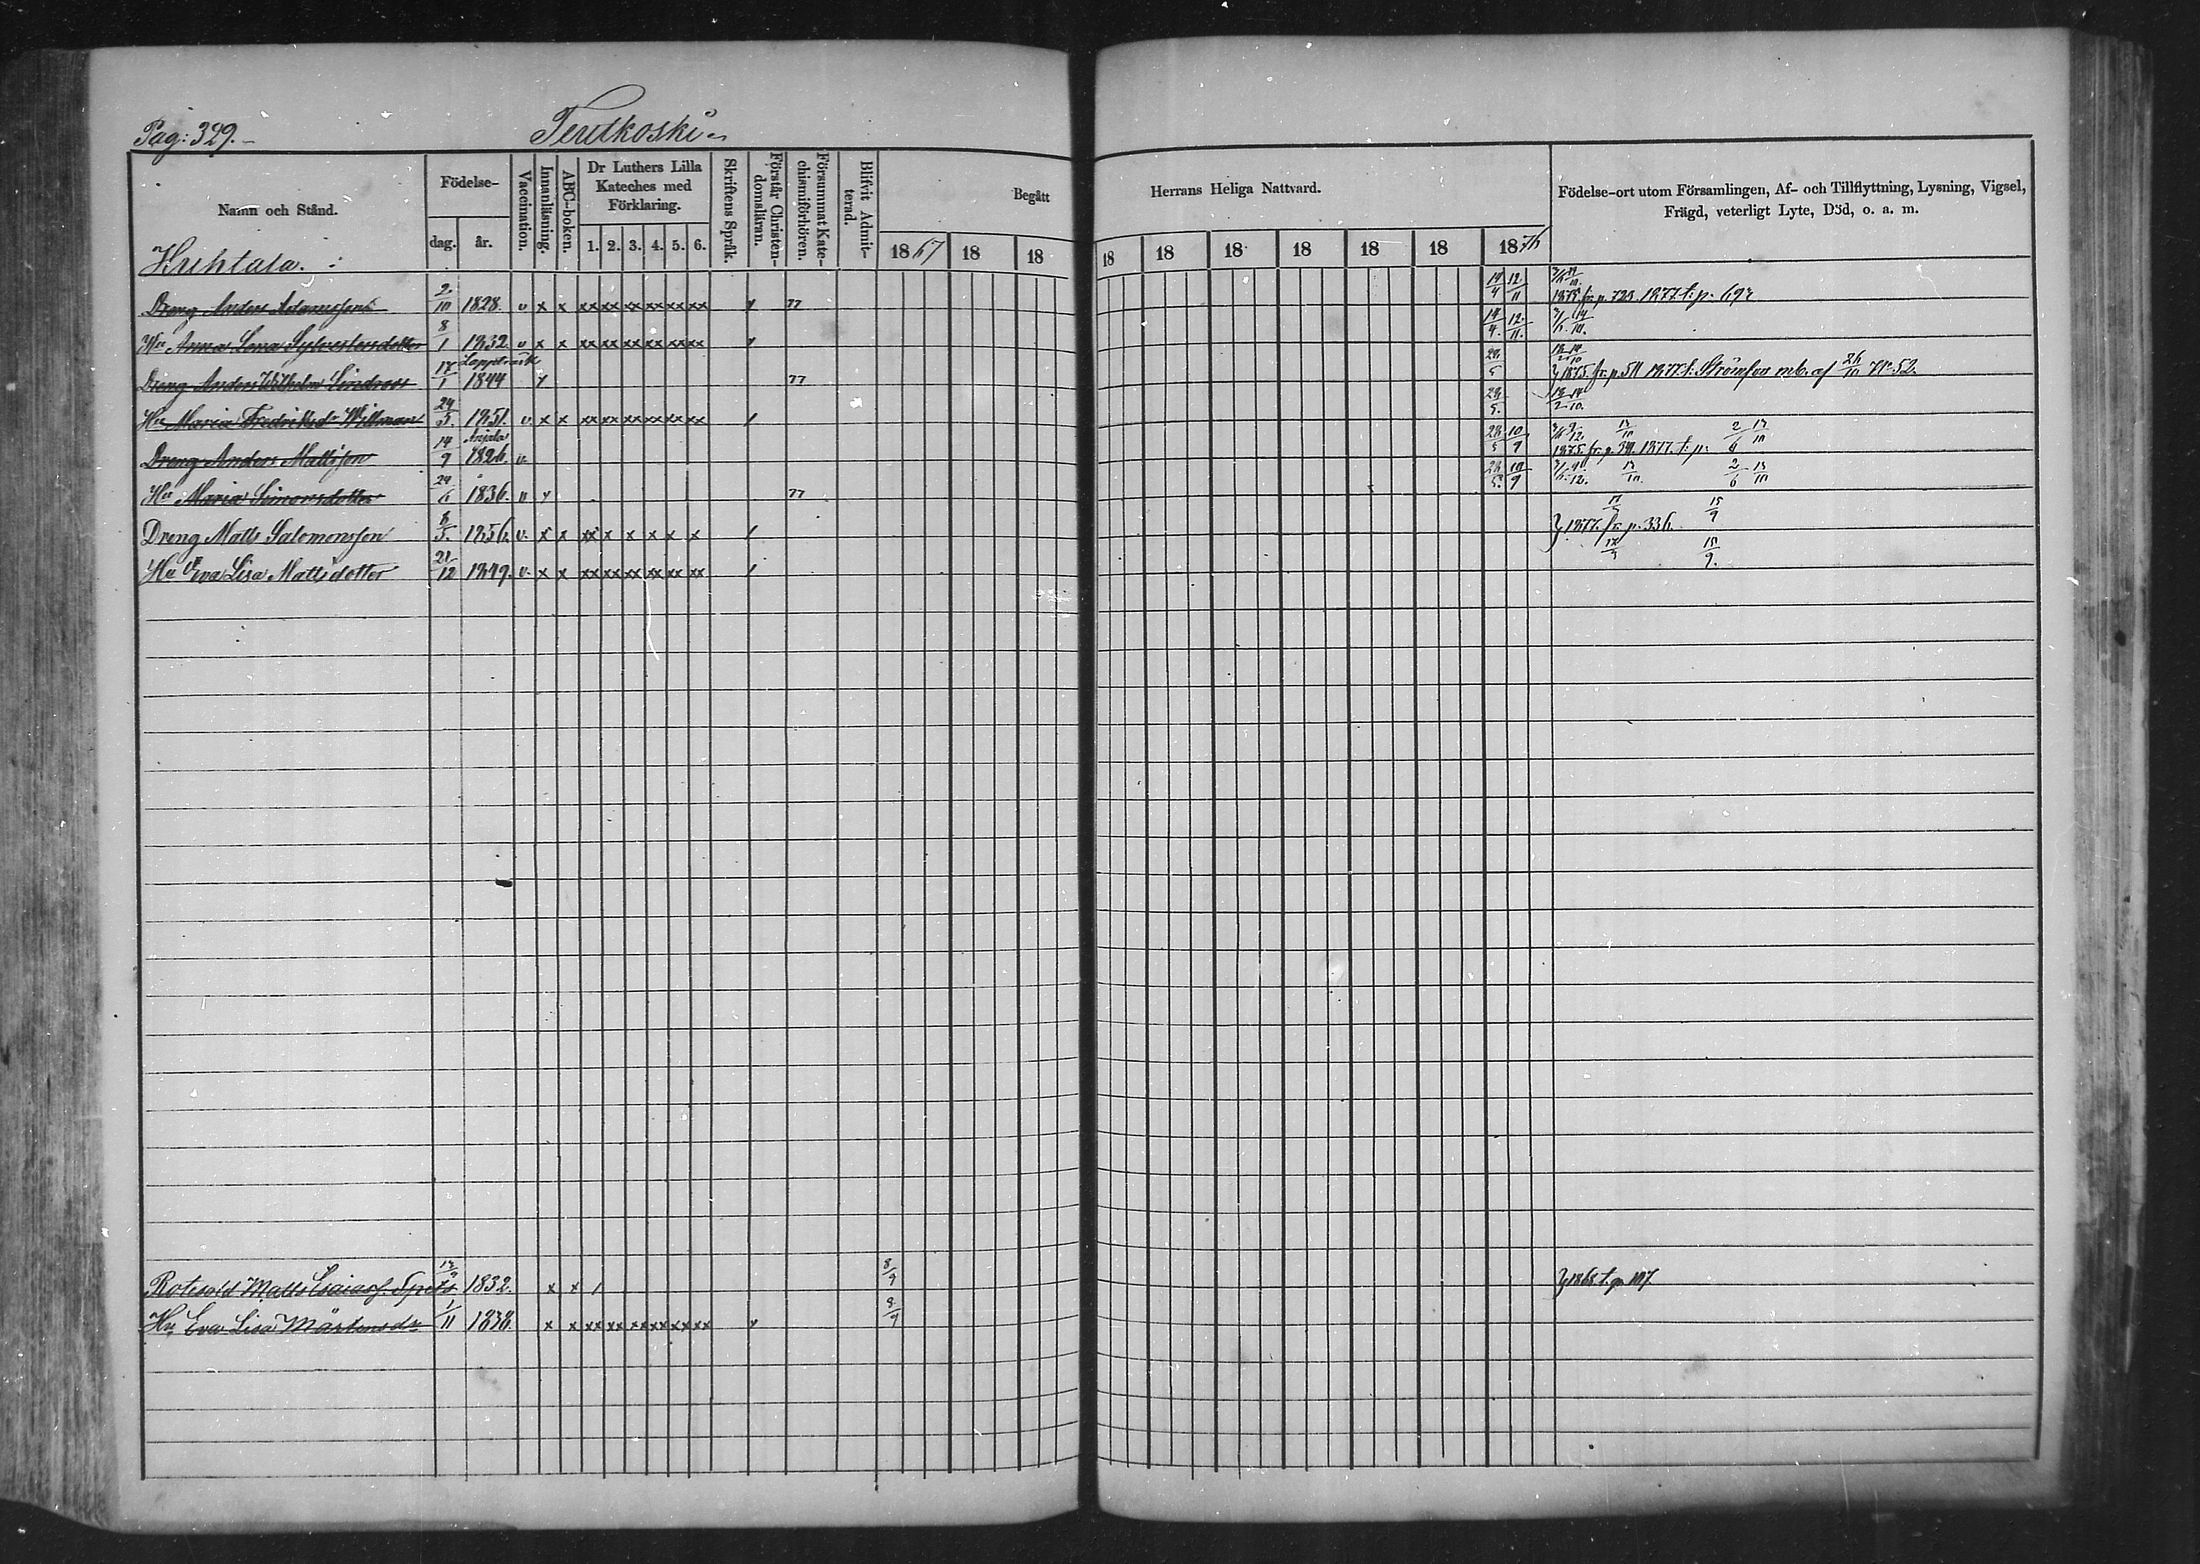 Pag: 329.
Teutkoski
Namn och Stånd.
Födelse-
dag. år.
Vaccination.
Innanläsning.
ABC-boken.
Dr Luthers Lilla Kateches med Förklaring.
1. 2. 3. 4. 5. 6.
Skriftens Språk.
Förstår Christendomsläran.
Försummat Katechismiförhören.
Blifvit Admitterad.
Begått Herrans Heliga Nattvard.
1867 18 18 18 18 18 18 18 18 1876
Födelse-ort utom Församlingen, Af- och Tillflyttning, Lysning, Vigsel, Frägd, veterligt Lyte, Död, o. a. m.
Huhtala.
Dreng Anders Adamsson 2/10 1828. v x x xx xx xx xx xx xx 77 12/11 1877 t. p.
Hu Anna Lena Sylvestersdotter 8/1 1832 v x x xx xx xx xx xx xx 12/11
Lappträsk
Dreng Anders Wilhelm Lindroos 17/1 1844 77 1875 fr. p. 511 1877 t. Strömfors mb. af 26/10 No 52.
Hu Maria Fredriksdr Willman 24/5 1851. v x x xx xx xx xx xx xx
Anjala
Dreng Anders Mattsson 14/9 1826. v. 28/5 10/9 1875 fr. p. 1877 t. p.
Hu Maria Simonsdotter 1836. v 77 28/5 10/9
Dreng Matts Salomonsson 1856. v. x x xx x x x x x 1877. fr. p. 336. 15/9
Hu Eva Lisa Mattsdotter 21/12 1849. v. x x xx xx xx xx xx xx 15/9.
Matts Esaiass. Spets 1832. x x 8/9 1868 t. p. 107.
Hu Eva Lisa Mårtensdr 1/11 1838. x x xx xx xx xx xx xx 8/9